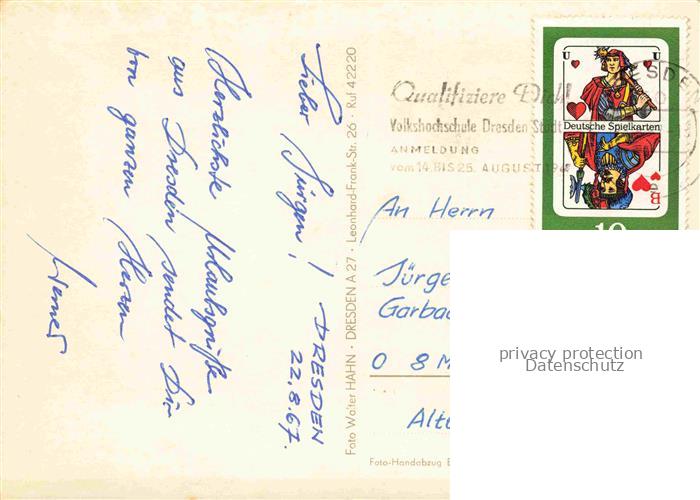 Lieber Jürgen!
DRESDEN
22.8.67.
Herzlichste Urlaubsgrüße
aus Dresden sendet Dir
von ganzem Herzen
Werner
Foto Walter HAHN · DRESDEN A 27 · Leonhard-Frank-Str. 26 · Ruf 42220
Qualifiziere Dich!
Volkshochschule Dresden Stadt
ANMELDUNG
vom 14. BIS 25. AUGUST
DRESDEN
U U
Deutsche Spielkarten
B
10
An Herrn
Jürge
Garba
0 8 M
Alt
Foto-Handabzug
privacy protection
Datenschutz